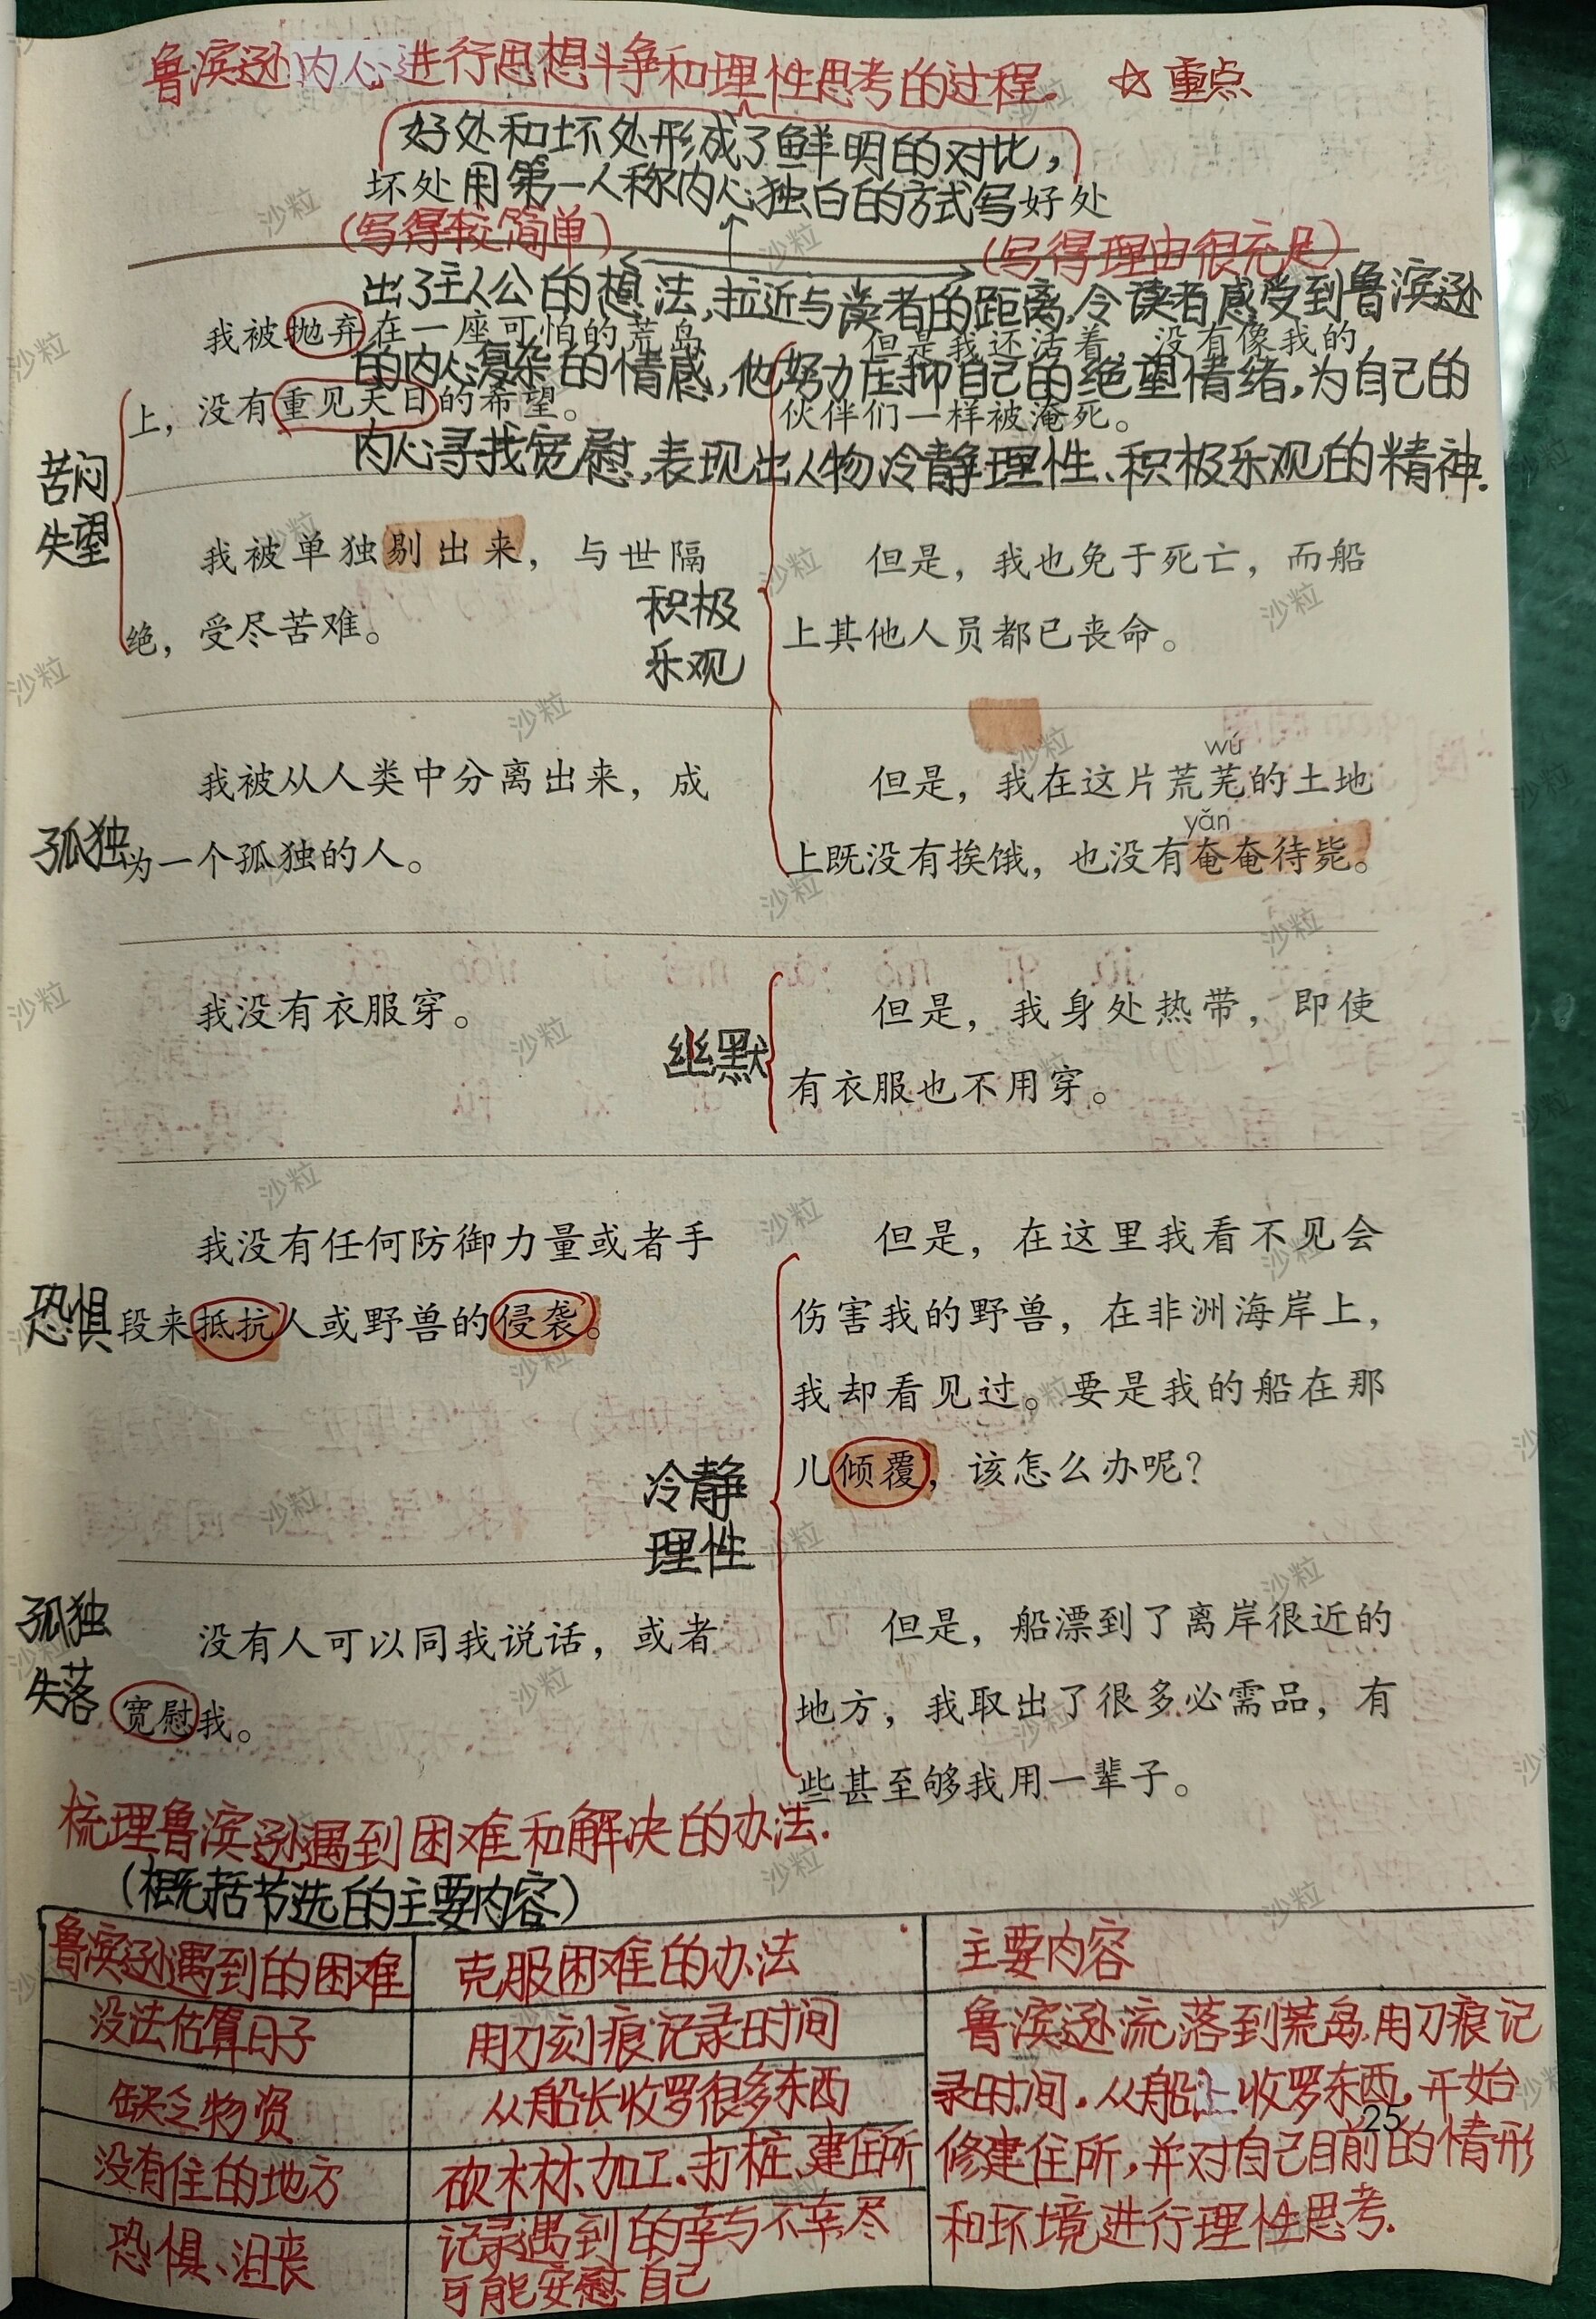 鲁滨逊内心进行思想斗争和理性思考的过程. ☆重点
好处和坏处形成了鲜明的对比,
坏处用第一人称内心独白的方式写好处
(写得较简单)
(写得理由很充足)
出了主人公的想法,拉近与读者的距离,令读者感受到鲁滨逊
的内心复杂的情感,他努力压抑自己的绝望情绪,为自己的
内心寻找宽慰,表现出人物冷静理性、积极乐观的精神.
苦闷
失望
我被抛弃在一座可怕的荒岛
上，没有重见天日的希望。
但是我还活着，没有像我的
伙伴们一样被淹死。
我被单独剔出来，与世隔
绝，受尽苦难。
积极
乐观
但是，我也免于死亡，而船
上其他人员都已丧命。
孤独
我被从人类中分离出来，成
为一个孤独的人。
wú
但是，我在这片荒芜的土地
yǎn
上既没有挨饿，也没有奄奄待毙。
我没有衣服穿。
幽默
但是，我身处热带，即使
有衣服也不用穿。
恐惧
我没有任何防御力量或者手
段来抵抗人或野兽的侵袭。
冷静
理性
但是，在这里我看不见会
伤害我的野兽，在非洲海岸上，
我却看见过。要是我的船在那
儿倾覆，该怎么办呢？
孤独
失落
没有人可以同我说话，或者
宽慰我。
但是，船漂到了离岸很近的
地方，我取出了很多必需品，有
些甚至够我用一辈子。
梳理鲁滨逊遇到困难和解决的办法.
(概括节选的主要内容)
鲁滨逊遇到的困难 克服困难的办法 主要内容
没法估算日子 用刀刻痕记录时间
缺乏物资 从船长收罗很多东西
没有住的地方 砍木材、加工、打桩、建住所
恐惧、沮丧 记录遇到的幸与不幸,尽
可能安慰自己
鲁滨逊流落到荒岛,用刀痕记
录时间,从船上收罗东西,开始
修建住所,并对自己目前的情形
和环境进行理性思考.
25
沙粒